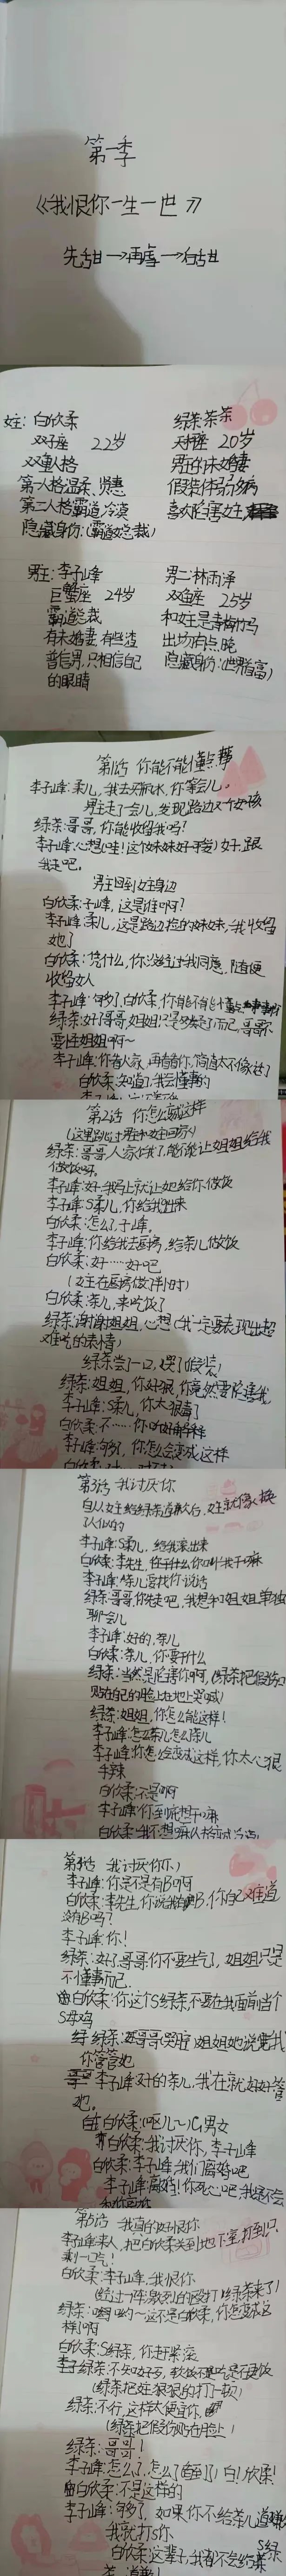 第一季
《我恨你一生一世》
先甜→再虐→后甜
女主：白欣柔
双子座 22岁
双重人格
第一人格温柔 贤惠
第二人格霸道冷漠
隐藏身份：(霸道女总裁)
绿茶：茶茶
天秤座 20岁
男主的未婚妻
假装体弱多病
喜欢陷害女主
男主：李子峰
巨蟹座 24岁
霸道总裁
有未婚妻，有些渣
普信男，只相信自己
的眼睛
男二：林雨泽
双鱼座 25岁
和女主是青梅竹马
出场有点晚
隐藏身份：(世界首富)
第1话 你能不能懂点事
李子峰：柔儿，我去买瓶水，你等会儿。
男主走了会儿，发现路边一个女孩
绿茶：哥哥，你能收留我吗？
李子峰：心想(哇！这个妹妹好可爱)好，跟
我走吧。
男主回到女主身边
白欣柔：子峰，这是谁啊？
李子峰：柔儿，这是路边捡的妹妹，我收留
她了
白欣柔：凭什么，你没经过我同意，随便
收留女人
李子峰：够了，白欣柔，你能不能懂点事
绿茶：好了哥哥，姐姐只是
要怪姐姐啊～
李子峰：你看人家，再看看你，简直太不像话了
白欣柔：知道了，我会懂事的
第2话 你怎么变成这样
(这里跳过男主和女主回家)
绿茶：哥哥人家饿了，能不能让姐姐给我
做饭呀。
李子峰：好，我马上就让她给你做饭
李子峰：S柔儿，你给我出来
白欣柔：怎么了，子峰。
李子峰：你给我去厨房，给茶儿做饭
白欣柔：好……好吧
(女主在厨房做了半小时)
白欣柔：茶儿，来吃饭了
绿茶：谢谢姐姐，心想(我一定要表现出超
难吃的表情)
绿茶尝了一口，哭了(假装)
绿茶：姐姐，你好狠，你竟然要陷害我
李子峰：S柔儿，你太狠毒了
白欣柔：不……你听我解释
李子峰：够了，你怎么变成这样
第3话 我讨厌你
自从女主给绿茶道歉后，女主就像换
了人似的
李子峰：S柔儿，给我滚出来
白欣柔：李先生，你干什么，你叫我干嘛
李子峰：茶儿要找你说话
绿茶：哥哥你先走吧，我想和姐姐单独
聊会儿
李子峰：好的，茶儿
白欣柔：茶儿，你要干什么
绿茶：当然是陷害你啊，(绿茶把假伤口
贴在自己的脸上在地上哭喊)
绿茶：姐姐，你怎么能这样！
李子峰：怎么了茶儿怎么了茶儿
李子峰：你怎么变成这样，你太心狠
手辣
白欣柔：不是啊
李子峰：你到底想干嘛
第4话 我讨厌你
李子峰：你是不是有B啊
白欣柔：李先生，你说谁有B，你自己难道
没有B吗？
李子峰：你！
绿茶：好了哥哥你不要生气了，姐姐只是
不懂事而已。
白欣柔：你这个S绿茶，不要在我面前当个
S母鸡
绿茶：哥哥(哭腔)姐姐她说我
你管管她
李子峰：好的茶儿，我在就好好管
她。
白欣柔：呕儿～儿，男女
白欣柔：我讨厌你，李子峰
白欣柔：李子峰，我们离婚吧
李子峰：离婚！你死心吧，我是不会
和你离婚
第5话 我真的好恨你
李子峰：来人，把白欣柔关到地下室，打到只
剩一口气！
白欣柔：李子峰，我恨你
(经过一阵激烈的殴打，绿茶来了)
绿茶：哟哟～这不是白欣柔，你怎么成这
样了啊
白欣柔：S绿茶，你赶紧滚
绿茶：不知好歹，软饭不吃是吧吃硬饭
(绿茶把女主狠狠的打一顿)
绿茶：不行，这样太便宜你
(绿茶把假伤贴在脸上)
绿茶：哥哥！
李子峰：怎么了，怎么了(看到了)白！欣柔！
白欣柔：不是这样的
李子峰：够了，如果你不给茶儿道歉
我就打S你
白欣柔：这辈子，我都不会给S绿
茶，道歉！